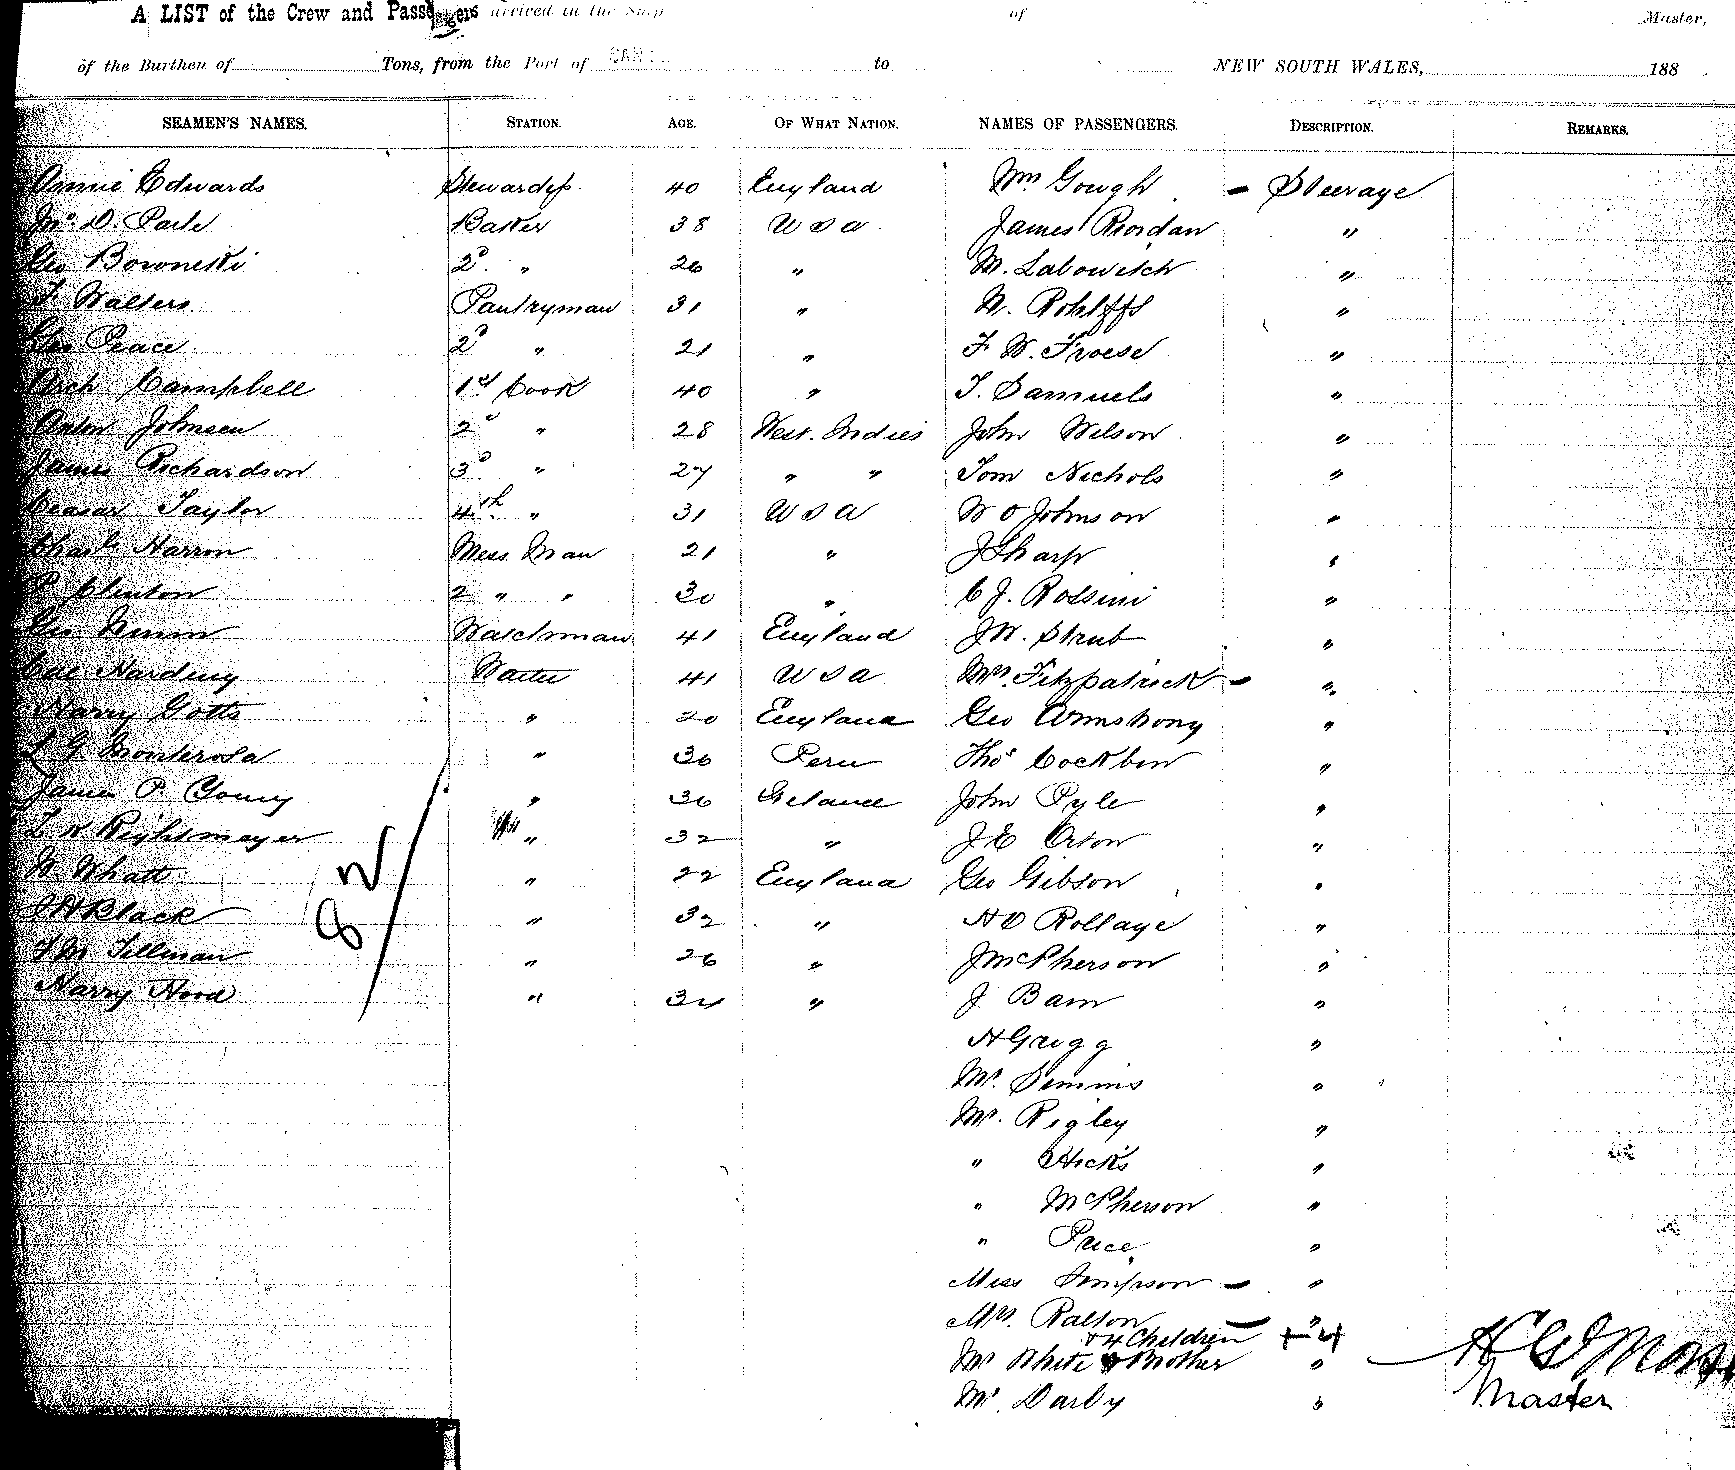 A LIST of the Crew and Passengers arrived in the Ship of Master,
of the Burthen of Tons, from the Port of to NEW SOUTH WALES, 188
SEAMEN'S NAMES. STATION. AGE. OF WHAT NATION. NAMES OF PASSENGERS. DESCRIPTION. REMARKS.
Annie Edwards Stewardess 40 England Gough - Steerage
D. Baker 38 USA James Riordan "
Geo 2d " 26 " M. Labowitch "
F Walters Pantryman 31 " Rohlffs "
Geo Peace 2d " 21 " F W. Froese "
Arch Campbell 1st Cook 40 " Samuels "
Anton Johnsen 2d " 28 West Indies John Wilson "
James Richardson 3d " 27 " " Tom Nichols "
Taylor 4th " 31 USA W O Johnson "
Mess Man 21 " J Sharp "
P. Clinton 2 " " 30 " C J. Rossini "
Geo Watchman 41 England J W. Strub "
Harding Waiter 41 USA Fitzpatrick - "
Harry Gotts " 20 England Geo Armstrong "
L G. Monterosa " 30 Peru Thos "
James P Young " Ireland John Pyle "
Rightmayer " 32 " J E Orton "
W " 22 England Geo Gibson "
Black " 32 " "
Tillman " 26 " J McPherson "
Harry Hood " " J "
H Grigg "
Mr. "
Mr. Rigley "
" Hicks "
" McPherson "
" Price "
Miss Simpson - "
Mrs. Ralton "
+ 4 Children +4
Mr White & Brother "
Mr. Darby "
Master